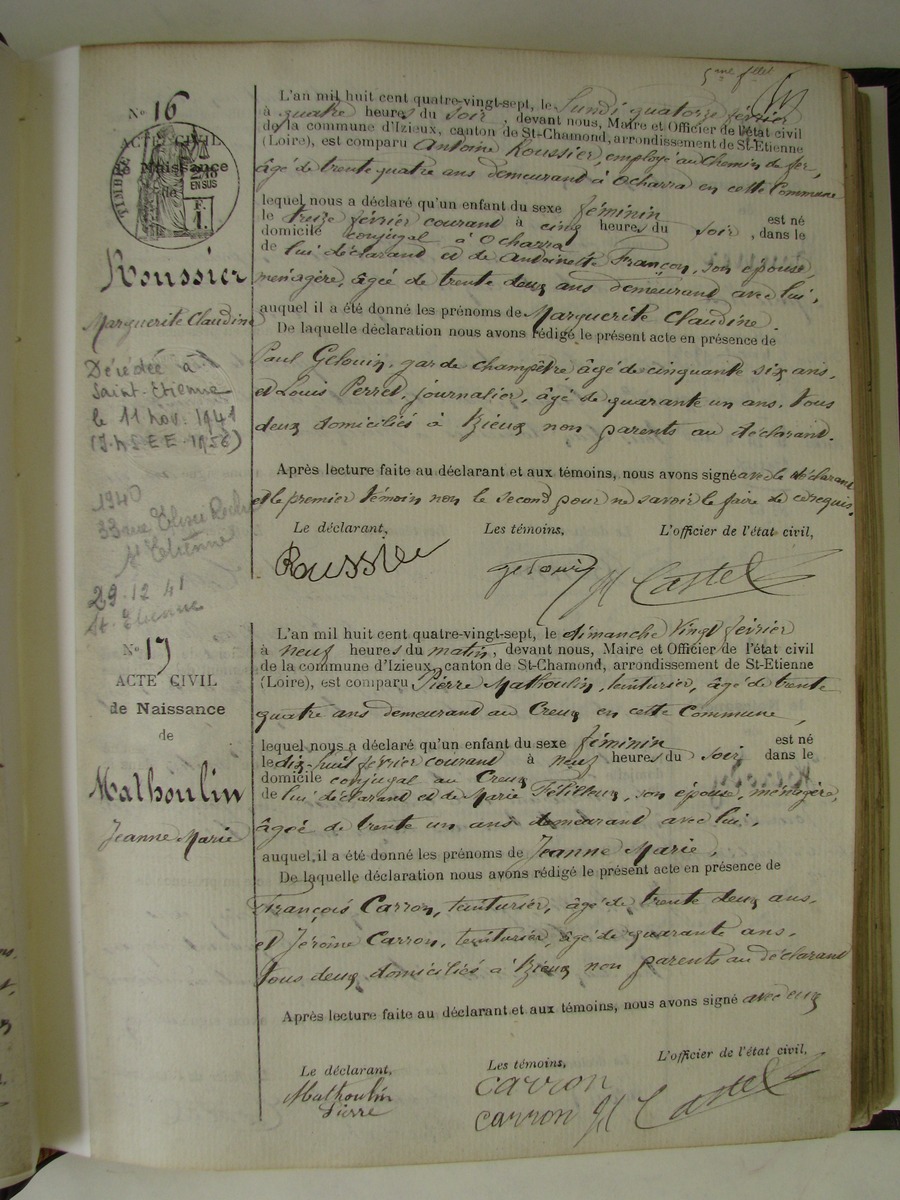 5me f
No 16
ACTE CIVIL
de Naissance
de
TIMBRE
2/10
EN SUS
F.
1.
Roussier
Marguerite Claudine
Décédée à
Saint-Etienne
le 11 nov. 1941
(I.N.S.E.E. 1956)
1940
33 rue Elisée Reclus
St Etienne
29.12 41
St. Etienne
L'an mil huit cent quatre-vingt-sept, le Lundi quatorze février
à quatre heures du soir, devant nous, Maire et Officier de l'état civil
de la commune d'Izieux, canton de St-Chamond, arrondissement de St-Etienne
(Loire), est comparu Antoine Roussier, employé au chemin de fer,
âgé de trente quatre ans demeurant à Ocharra en cette Commune
lequel nous a déclaré qu'un enfant du sexe féminin est né
le treize février courant à cinq heures du soir, dans le
domicile conjugal à Ocharra
de lui déclarant et de Antoinette Françon, son épouse,
ménagère, âgée de trente deux ans demeurant avec lui,
auquel il a été donné les prénoms de Marguerite Claudine.
De laquelle déclaration nous avons rédigé le présent acte en présence de
Paul Gelouin, garde champêtre, âgé de cinquante six ans,
et Louis Perret, journalier, âgé de quarante un ans. Tous
deux domiciliés à Izieux non parents au déclarant.
Après lecture faite au déclarant et aux témoins, nous avons signé avec le déclarant
et le premier témoin non le second pour ne savoir le faire de ce requis.
Le déclarant, Les témoins, L'officier de l'état civil,
Roussier Gelouin Castel
No 17
ACTE CIVIL
de Naissance
de
Mathoulin
Jeanne Marie
L'an mil huit cent quatre-vingt-sept, le dimanche Vingt février
à neuf heures du matin, devant nous, Maire et Officier de l'état civil
de la commune d'Izieux, canton de St-Chamond, arrondissement de St-Etienne
(Loire), est comparu Pierre Mathoulin, teinturier, âgé de trente
quatre ans demeurant au Creux en cette Commune,
lequel nous a déclaré qu'un enfant du sexe féminin est né
le dix-huit février courant à neuf heures du soir, dans le
domicile conjugal au Creux
de lui déclarant et de Marie son épouse, ménagère,
âgée de trente un ans demeurant avec lui,
auquel, il a été donné les prénoms de Jeanne Marie,
De laquelle déclaration nous avons rédigé le présent acte en présence de
François Carron, teinturier, âgé de trente deux ans.
et Jérôme Carron, teinturier, âgé de quarante ans.
Tous deux domiciliés à Izieux non parents au déclarant
Après lecture faite au déclarant et aux témoins, nous avons signé avec eux
Le déclarant, Les témoins, L'officier de l'état civil,
Mathoulin carron
Pierre carron Castel